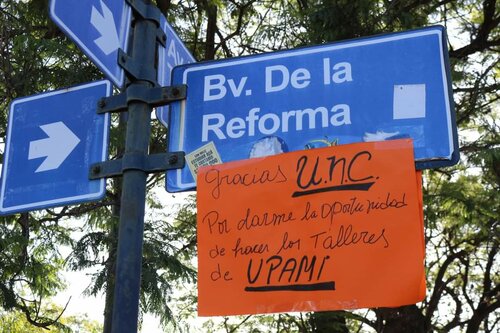 AV
Bv. De la
Reforma
Gracias U.N.C.
Por darme la oportunidad
de hacer los Talleres
de UPAMI